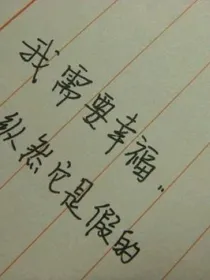 我需要幸福。
纵然它是假的